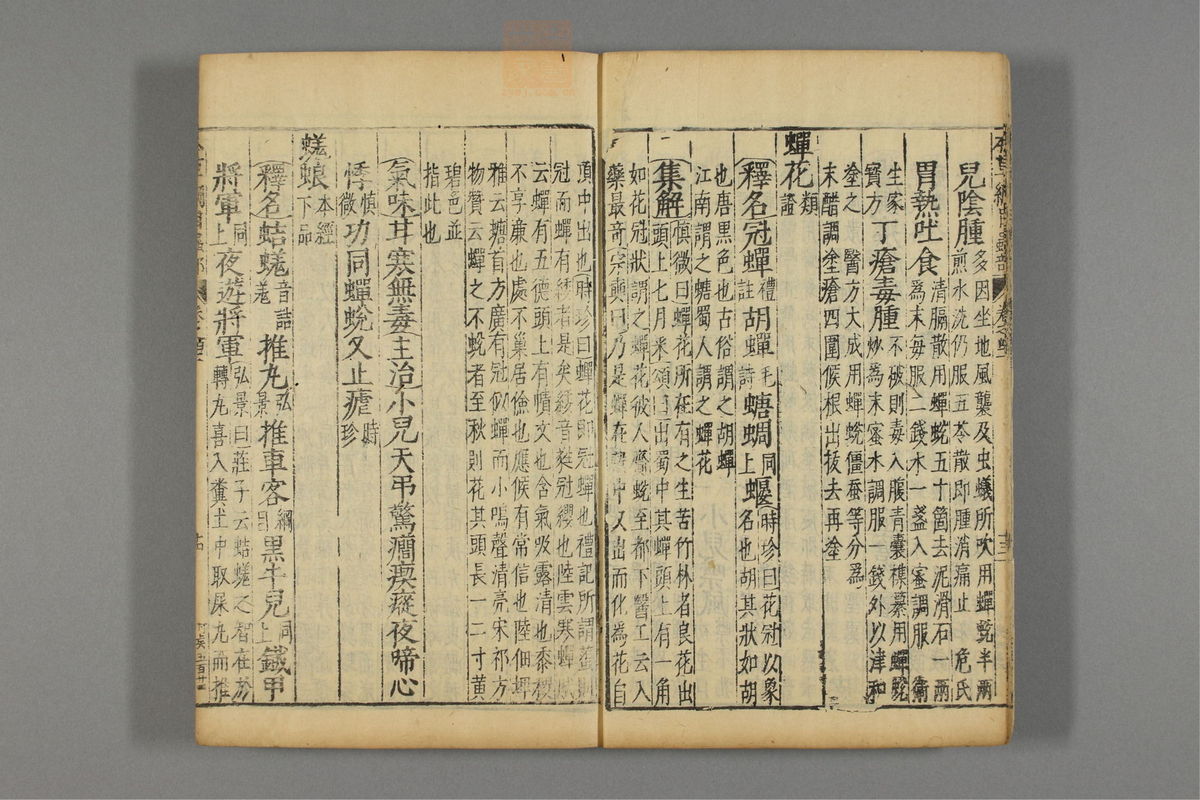 兒陰腫多因坐地風襲及虫蟻所吹用蟬蛻半兩
煎水洗仍服五苓散即腫消痛止危氏
胃熱吐食清膈散用蟬蛻五十箇去泥滑石一兩
為末每服二錢水一盞入蜜調服衛
生家寶方丁瘡毒腫不破則毒入腹青囊襍纂用蟬蛻
炒為末蜜水調服一錢外以津和
塗之醫方大成用蟬蛻僵蚕等分為
末醋調塗瘡四圍候根出拔去再塗
蟬花證類
釋名冠蟬禮註胡蟬毛詩螗蜩同上蝘時珍曰花冠以象
名也胡其狀如胡
也唐黑色也古俗謂之胡蟬
江南謂之螗蜀人謂之蟬花
集解慎微曰蟬花所在有之生苦竹林者良花出
頭上七月采頌曰出蜀中其蟬頭上有一角
如花冠狀謂之蟬花彼人齎蛻至都下醫工云入
藥最奇宗奭曰乃是蟬在殼中不出而化為花自
頂中出也時珍曰蟬花即冠蟬也禮記所謂蓋則
冠而蟬有緌者是矣緌音蕤冠纓也陸雲寒蟬賦
云蟬有五德頭上有幘文也含氣吸露清也黍稷
不享廉也處不巢居儉也應候有常信也陸佃埤
雅云螗首方廣有冠似蟬而小鳴聲清亮宋祁方
物贊云蟬之不蛻者至秋則花其頭長一二寸黃
碧色並
指此也
氣味甘寒無毒主治小兒天吊驚癎瘈瘲夜啼心
悸慎微功同蟬蛻又止瘧時珍
蜣蜋本經下品
釋名蛣蜣音詰羌推丸弘景推車客綱目黑牛兒同上鐵甲
將軍同上夜遊將軍弘景曰莊子云蛣蜣之智在於
轉丸喜入糞土中取屎丸而推